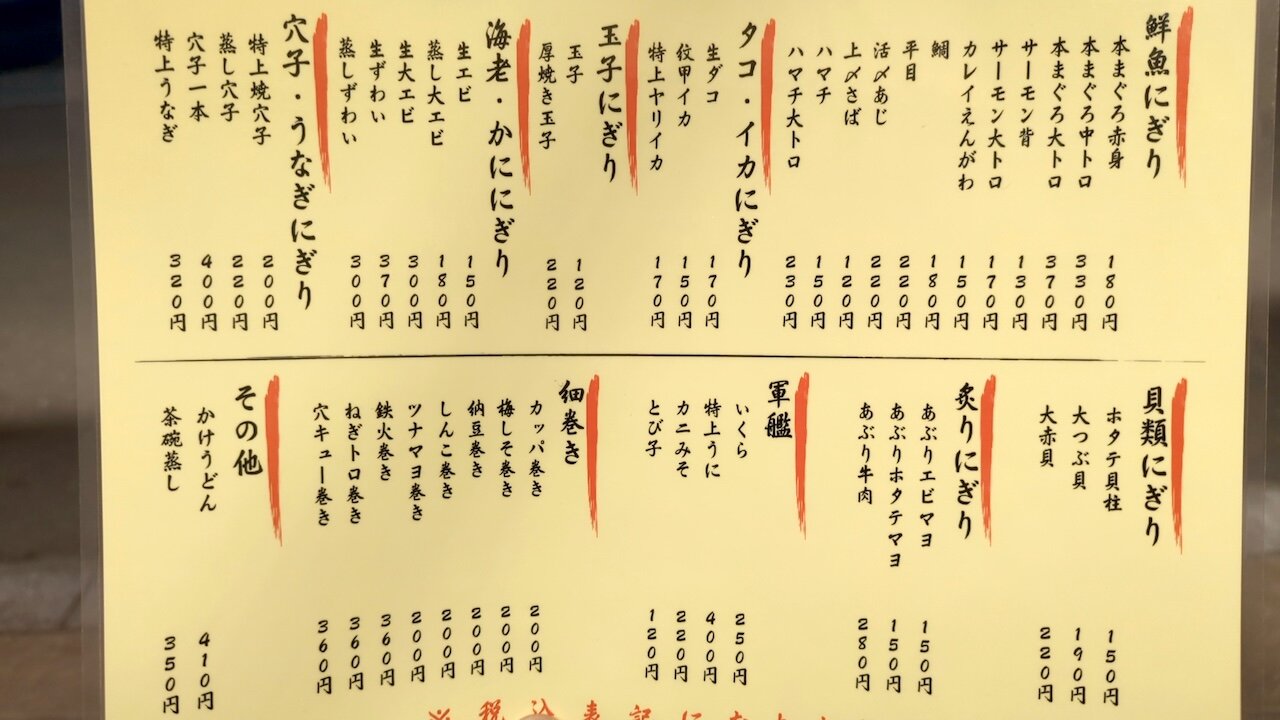 鮮魚にぎり
本まぐろ赤身 180円
本まぐろ中トロ 330円
本まぐろ大トロ 370円
サーモン背 130円
サーモン大トロ 170円
カレイえんがわ 150円
鯛 180円
平目 220円
活〆あじ 220円
上〆さば 120円
ハマチ 150円
ハマチ大トロ 230円
タコ・イカにぎり
生ダコ 170円
紋甲イカ 150円
特上ヤリイカ 170円
玉子にぎり
玉子 120円
厚焼き玉子 220円
海老・かににぎり
生エビ 150円
蒸し大エビ 180円
生大エビ 300円
生ずわい 370円
蒸しずわい 300円
穴子・うなぎにぎり
特上焼穴子 200円
蒸し穴子 220円
穴子一本 400円
特上うなぎ 320円
貝類にぎり
ホタテ貝柱 150円
大つぶ貝 190円
大赤貝 220円
炙りにぎり
あぶりエビマヨ 150円
あぶりホタテマヨ 150円
あぶり牛肉 280円
軍艦
いくら 250円
特上うに 400円
カニみそ 220円
とび子 120円
細巻き
カッパ巻き 200円
梅しそ巻き 200円
納豆巻き 200円
しんこ巻き 200円
ツナマヨ巻き 200円
鉄火巻き 360円
ねぎトロ巻き 360円
穴キュー巻き 360円
その他
かけうどん 410円
茶碗蒸し 350円
※税込表記に